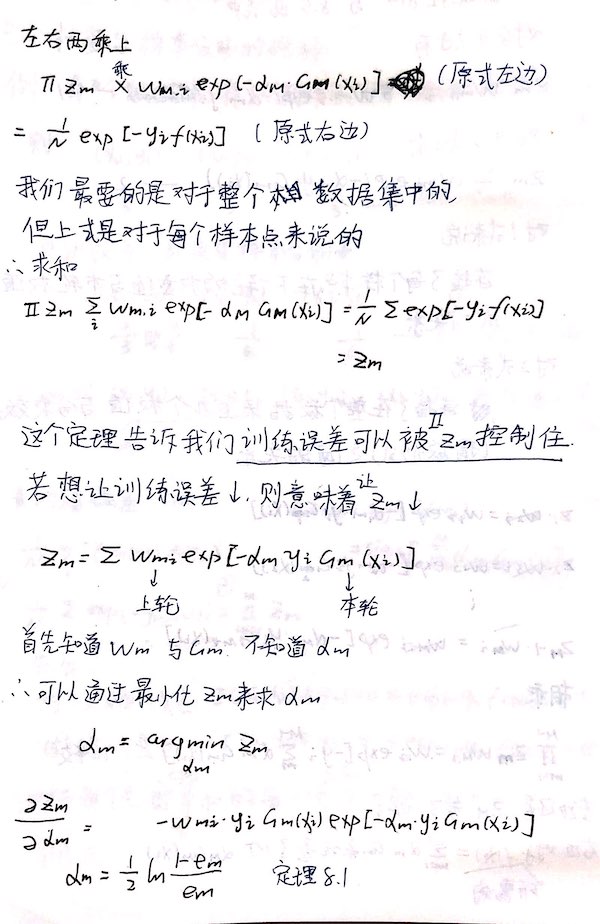 左右两乘上
π Zm 乘 × Wm.i exp(-αm·Gm(xi)] (原式左边)
= 1/N exp[-yi f(xi)] (原式右边)
我们最要的是对于整个 数据集中的
但上式是对于每个样本点来说的
∴ 求和
π Zm Σi Wm.i exp[-αm Gm(xi)] = 1/N Σ exp[-yi f(xi)]
= Zm
这个定理告诉我们训练误差可以被 π Zm控制住.
若想让训练误差↓, 则意味着让 Zm↓
Zm = Σ Wmi exp[-αm yi Gm(xi)]
↓ ↓
上轮 本轮
首先知道 Wm 与 Gm 不知道 αm
∴ 可以通过最小化 Zm来求 αm
αm = argmin Zm
αm
∂Zm/∂αm = -Wmi·yi Gm(xi) exp[-αm·yi Gm(xi)]
αm = 1/2 ln (1-em)/em 定理8.1